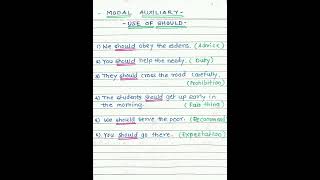 - MODAL AUXILIARY -
- USE OF SHOULD -
1) We should obey the elders. (Advice)
2) You should help the needy. (Duty)
3) They should cross the road carefully.
(Prohibition)
4) The students should get up early in
the morning. (Fair thing)
5) We should serve the poor. (Recommend)
6) You should go there. (Expectation)